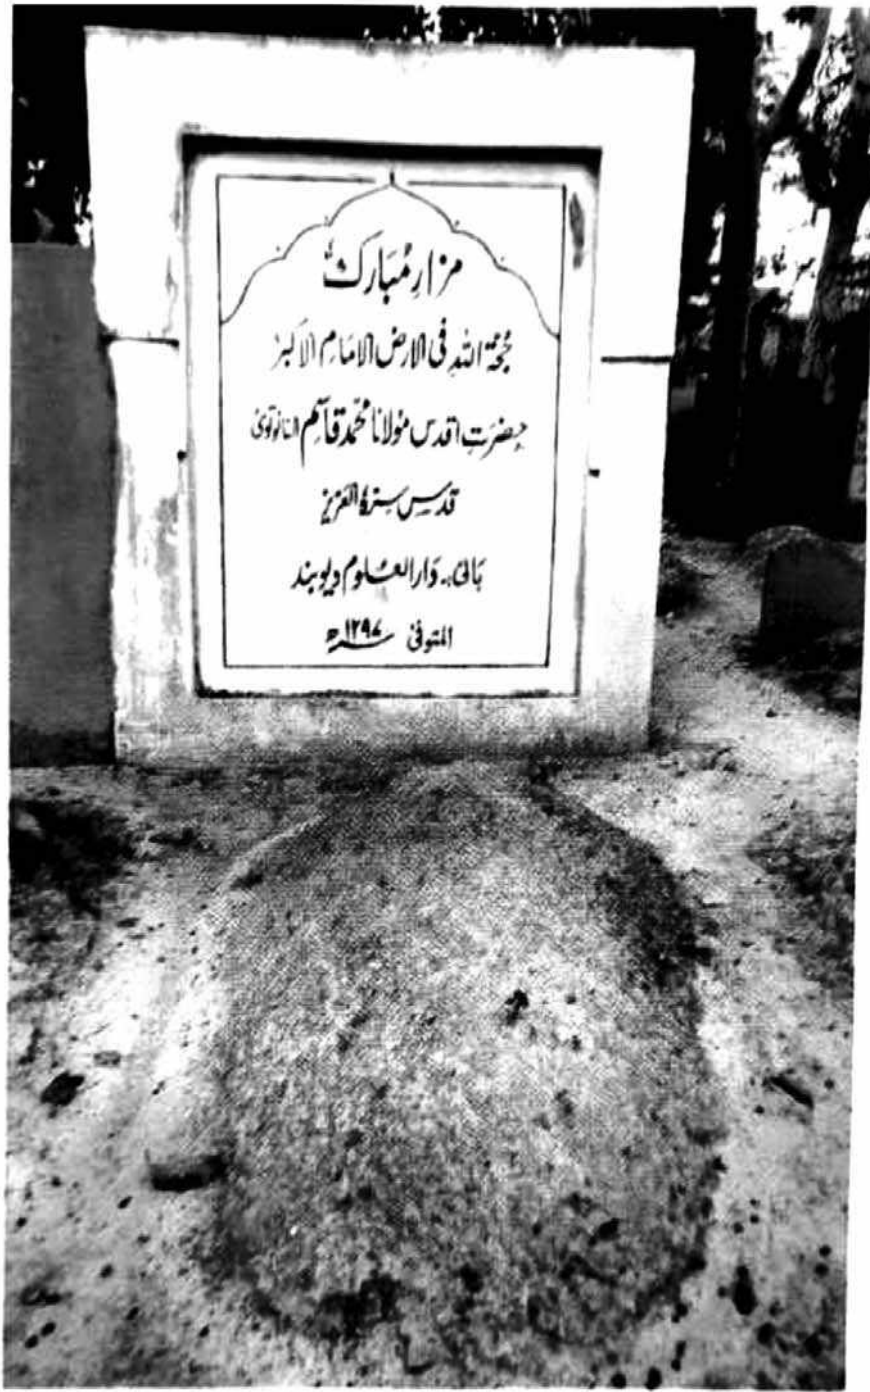 مزارِ مُبارک
حُجۃ اللہِ فی الارض الامام الاکبر
حضرتِ اقدس مولانا محمّد قاسم النانوتوی
قدس سرہٗ العزیز
بانی۔ دارالعلوم دیوبند
المتوفیٰ ۱۲۹۷ھ